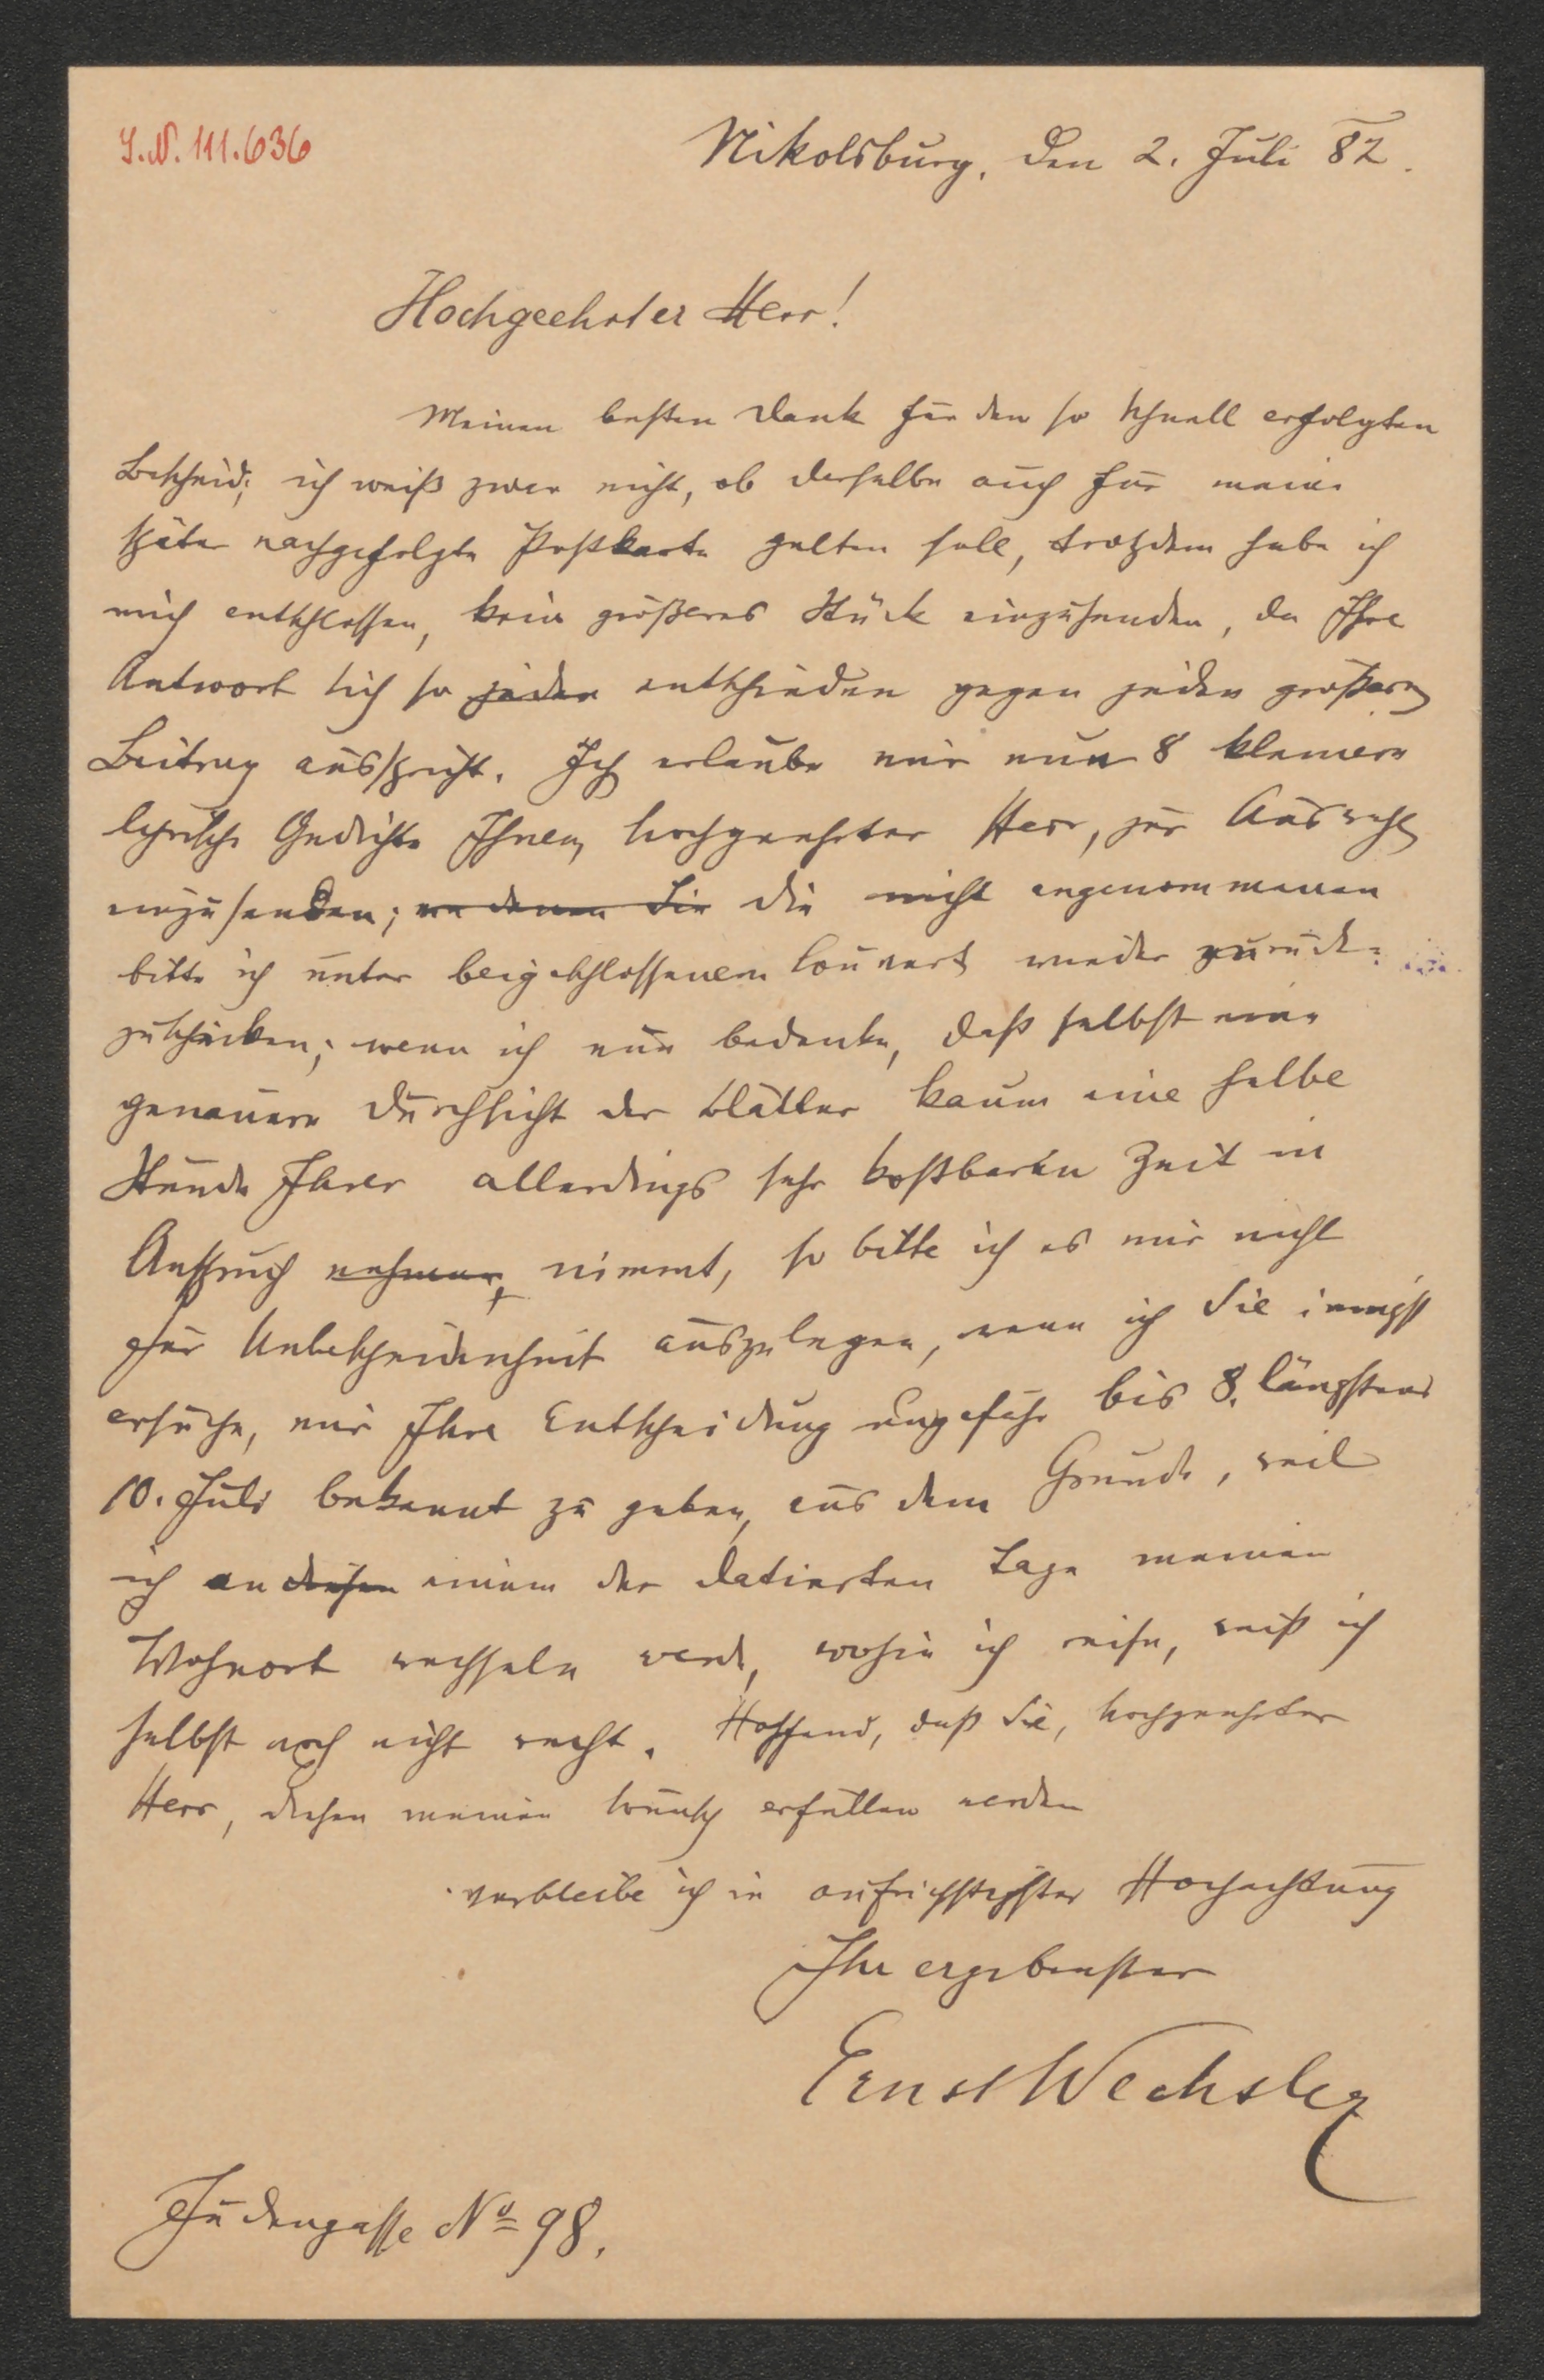 I.N. 111.636
Nikolsburg, den 2. Juli 82.
Hochgeehrter Herr!
Meinen besten Dank für den so schnell erfolgten
Bescheid; ich weiß zwar nicht, ob derselbe auch für meine
später nachgefolgte Postkarte gelten soll, trotzdem habe ich
mich entschlossen, kein größeres Stück einzusenden, da Ihre
Antwort sich so jeden entschieden gegen jeden größern
Beitrag ausspricht. Ich erlaube mir nun 8 kleinere
lyrische Gedichte Ihnen, hochgeehrter Herr, zur Auswahl
einzusenden; von denen Sie die nicht angenommenen
bitte ich unter beigeschlossenem Couvert wieder zurück-
zuschicken; wenn ich nun bedenke, daß selbst eine
genauere Durchsicht der Blätter kaum eine halbe
Stunde Ihrer allerdings sehr kostbaren Zeit in
Anspruch nehmen, nimmt, so bitte ich es mir nicht
für Unbescheidenheit auszulegen, wenn ich Sie innigst
ersuche, mir Ihre Entscheidung ungefähr bis 8. längstens
10. Juli bekannt zu geben, aus dem Grunde, weil
ich an diesen einem der datierten Tage meinen
Wohnort wechseln werde, wohin ich reise, weiß ich
selbst noch nicht recht. Hoffend, daß Sie, hochgeehrter
Herr, diesen meinen Wunsch erfüllen werden
verbleibe ich in aufrichtigster Hochachtung
Ihr ergebenster
Ernst Wechsler
Judengasse No 98.